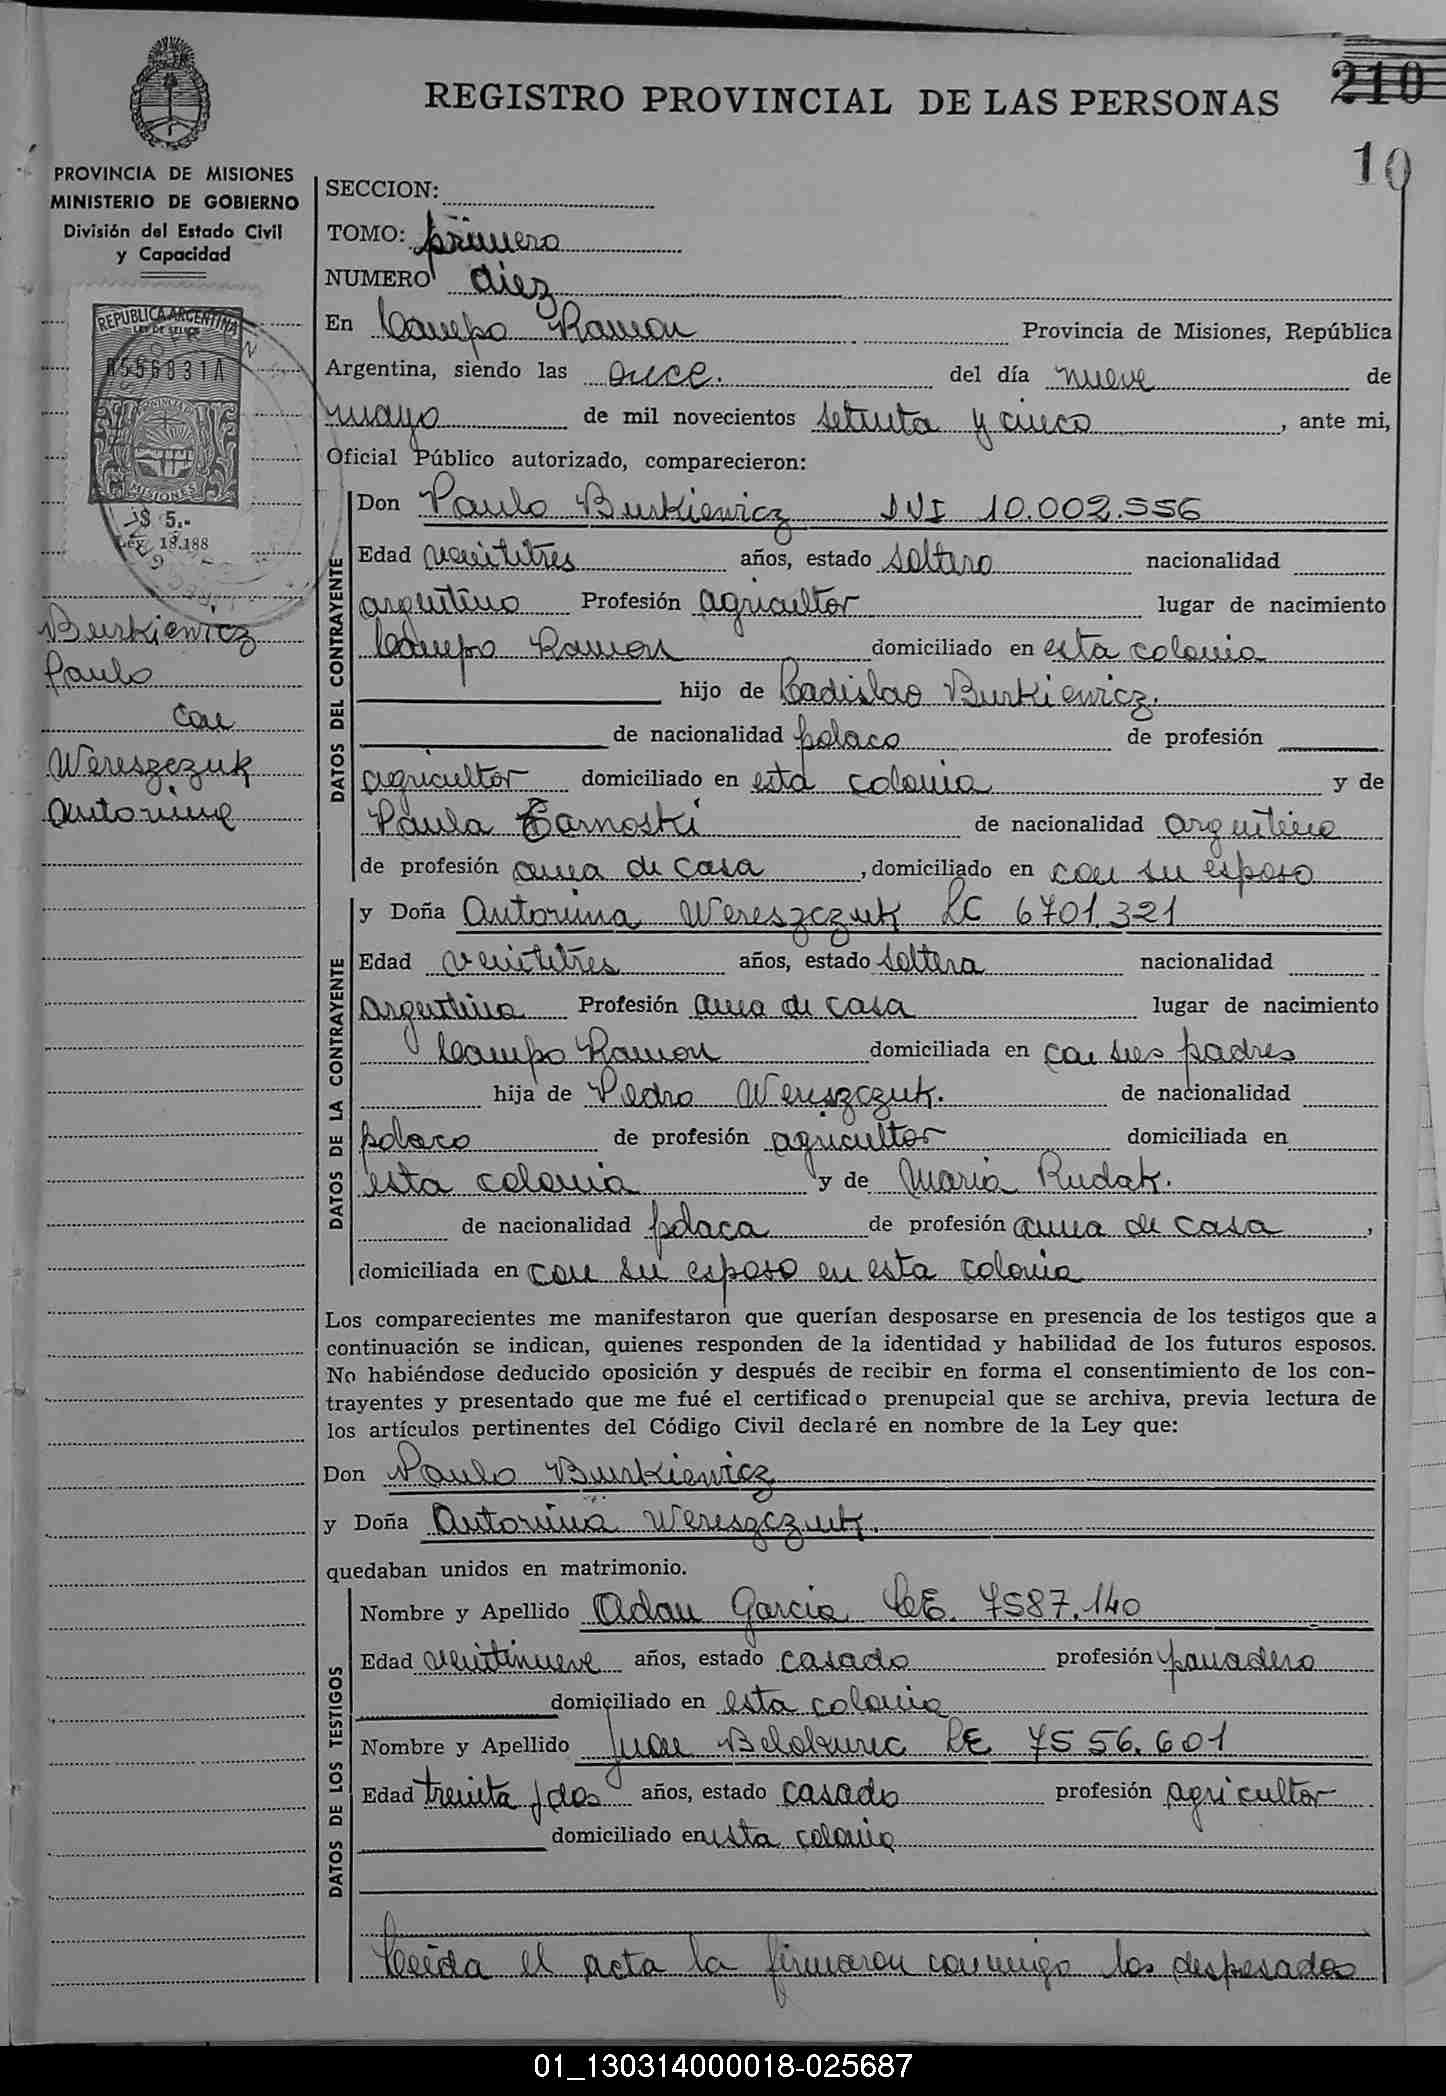 REGISTRO PROVINCIAL DE LAS PERSONAS
210
10
PROVINCIA DE MISIONES
MINISTERIO DE GOBIERNO
División del Estado Civil
y Capacidad
REPUBLICA ARGENTINA
LEY DE SELLOS
0556831A
PROVINCIA
MISIONES
$ 5.-
Ley 18.188
Burkiewicz
Paulo
con
Wereszczuk
Antonina
SECCION:
TOMO: primero
NUMERO diez
En Campo Ramon Provincia de Misiones, República
Argentina, siendo las once. del día nueve de
mayo de mil novecientos setenta y cinco, ante mi,
Oficial Público autorizado, comparecieron:
DATOS DEL CONTRAYENTE
Don Paulo Burkiewicz DNI 10.002.556
Edad veintitres años, estado soltero nacionalidad
argentino Profesión agricultor lugar de nacimiento
Campo Ramon domiciliado en esta colonia
hijo de Ladislao Burkiewicz.
de nacionalidad polaco de profesión
agricultor domiciliado en esta colonia y de
Paula Tarnoski de nacionalidad argentina
de profesión ama de casa, domiciliado en con su esposo
DATOS DE LA CONTRAYENTE
y Doña Antonina Wereszczuk LC 6701.321
Edad veintitres años, estado soltera nacionalidad
Argentina Profesión ama de casa lugar de nacimiento
Campo Ramon domiciliada en con sus padres
hija de Pedro Wereszczuk. de nacionalidad
polaco de profesión agricultor domiciliada en
esta colonia y de Maria Rudak.
de nacionalidad polaca de profesión ama de casa,
domiciliada en con su esposo en esta colonia
Los comparecientes me manifestaron que querían desposarse en presencia de los testigos que a
continuación se indican, quienes responden de la identidad y habilidad de los futuros esposos.
No habiéndose deducido oposición y después de recibir en forma el consentimiento de los con-
trayentes y presentado que me fué el certificado prenupcial que se archiva, previa lectura de
los artículos pertinentes del Código Civil declaré en nombre de la Ley que:
Don Paulo Burkiewicz
y Doña Antonina Wereszczuk.
quedaban unidos en matrimonio.
DATOS DE LOS TESTIGOS
Nombre y Apellido Adan Garcia LE. 7587.140
Edad veintinueve años, estado casado profesión panadero
domiciliado en esta colonia
Nombre y Apellido Juan Belokurec LE 7556.601
Edad treinta y dos años, estado casado profesión agricultor
domiciliado en esta colonia
Leida el acta la firmaron conmigo los desposados
01_130314000018-025687